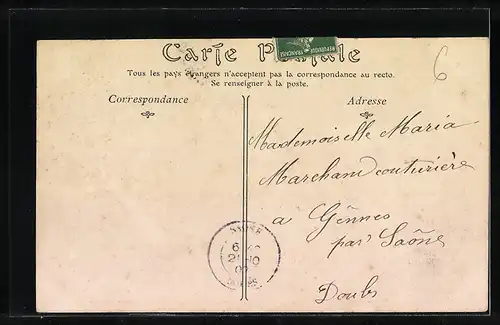 Carte Postale
REPUBLIQUE FRANÇAISE
6
Tous les pays étrangers n'acceptent pas la correspondance au recto.
Se renseigner à la poste.
Correspondance
Adresse
Mademoiselle Maria
Marchand couturière
a Gênnes
par Saône
Doubs
6
21-10